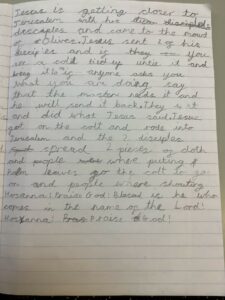 Jesus is getting closer to
Jerusalem with his disciples
desceples and came to the mount
of olives. Jesus sent 2 of his
disciples and if they you
see a cold tied up untie it and
bring it if anyone asks you
what you are doing say
that the master needs it and
he will send it back. They it
and did what Jesus said. Jesus
got on the colt and rode into
Jerusalem and the 2 disciples
spread 2 pieces of cloth
and people where puting
palm leaves for the colt to go
on and people where shouting
Hosanna! Praise God! Blessed is he who
comes in the name of the Lord!
Hosanna! Praise God!